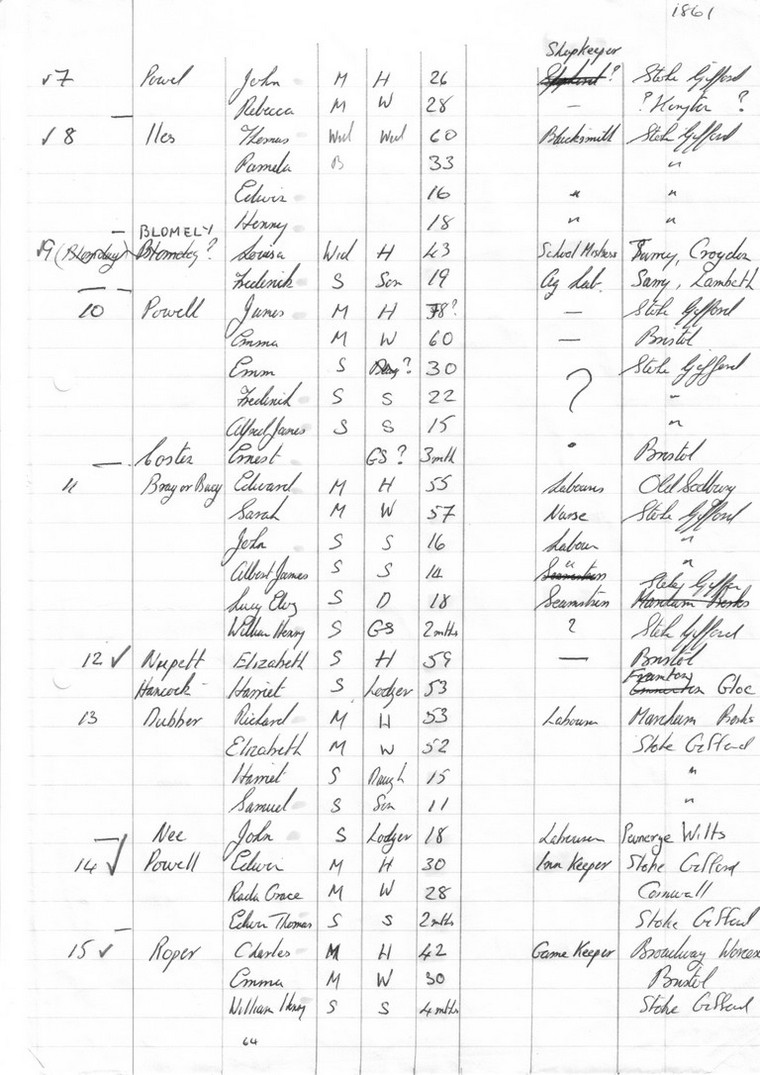 1861
Shopkeeper
√7 Powel John M H 26 ? Stoke Gifford
Rebecca M W 28 — ? ?
√8 Iles Thomas Wid Wid 60 Blacksmith Stoke Gifford
Pamela B 33 "
Edwin 16 " "
Henry 18 " "
BLOMELY
√9 ? Louisa Wid H 43 School Mistress Croydon
Frederick S Son 19 Ag Lab. Lambeth
10 Powell James M H 78? — Stoke Gifford
Emma M W 60 — Bristol
Emm S ? 30 Stoke Gifford
Frederick S S 22 ? "
Alfred James S S 15 "
Coster Ernest GS ? 3mth " Bristol
11 Bray or Bucy Edward M H 55 Labourer Old Sodbury
Sarah M W 57 Nurse Stoke Gifford
John S S 16 Labour "
Albert James S S 14 " "
Lucy Eliz S D 18 Seamstress Stoke Giffor
William Henry S GS 2mths ? Stoke Gifford
12 √ Elizabeth S H 59 — Bristol
Hancock Harriet S Lodger 53 Gloc
13 Dubber Richard M H 53 Labourer Marcham Berks
Elizabeth M W 52 Stoke Gifford
Harriet S Daugh 15 "
Samuel S Son 11 "
Nee John S Lodger 18 Labourer Wilts
14 √ Powell Edwin M H 30 Inn Keeper Stoke Gifford
Grace M W 28 Cornwall
Edwin Thomas S S 2mths Stoke Gifford
15 √ Roper Charles M H 42 Game Keeper Broadway Worces
Emma M W 30 Bristol
William Henry S S 4mths Stoke Gifford
64